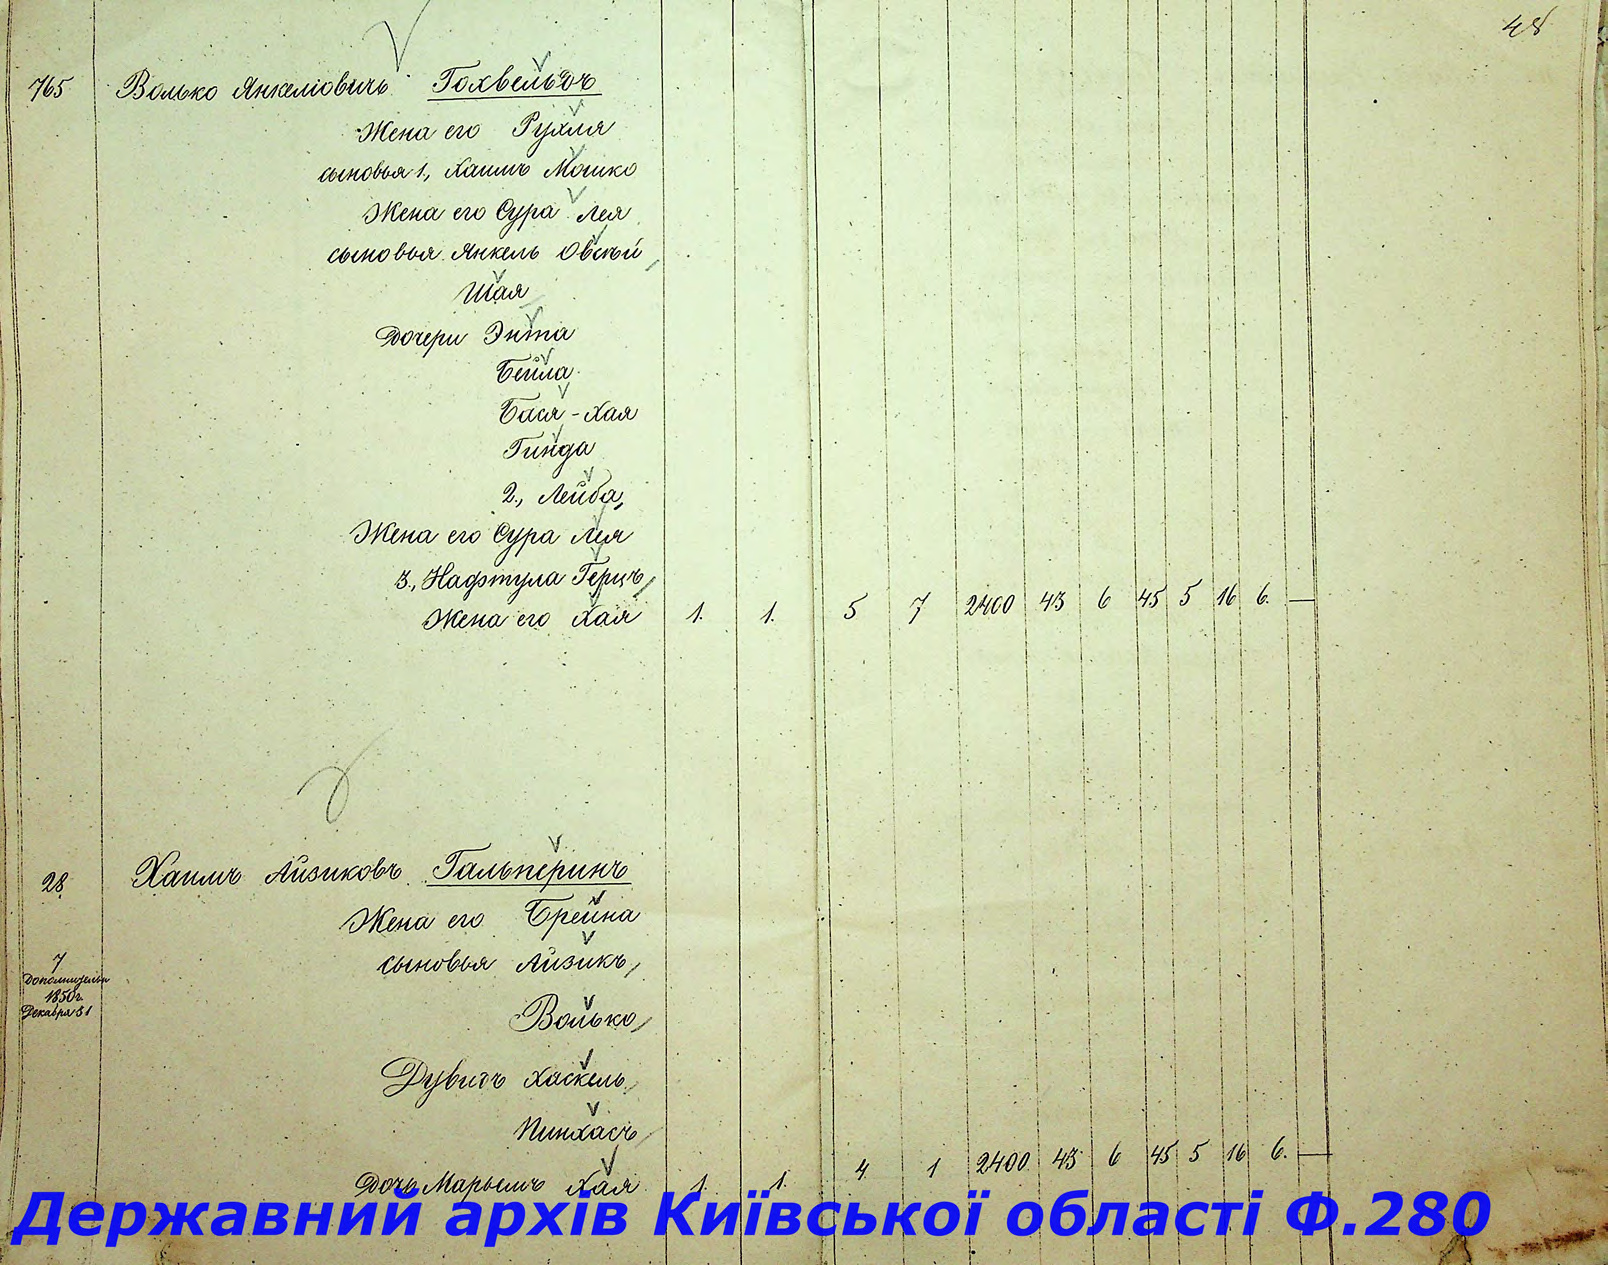 48
765 Волько Янкеліовичъ Гохвельдъ
Жена его Рухля
сыновья 1., Хаимъ Мошко
Жена его Сура Лея
сыновья Янкель Овсѣй,
Шая
Дочери Энта
Бейла
Бася-Хая
Гинда
2., Лейба,
Жена его Сура Лея
3., Нафтула Герцъ,
Жена его Хая 1. 1. 5 7 2400 43 6 45 5 16 6. —
28 Хаимъ Айзиковъ Гальперинъ
Жена его Брейна
сыновья Айзикъ,
7
Дополнительн
1850 г.
Декабря 31
Волько,
Дувидъ Хаскель,
Пинхасъ,
Дочь Марьемъ Хая 1. 1. 4 1 2400 43 6 45 5 16 6. —
Державний архів Київської області Ф.280